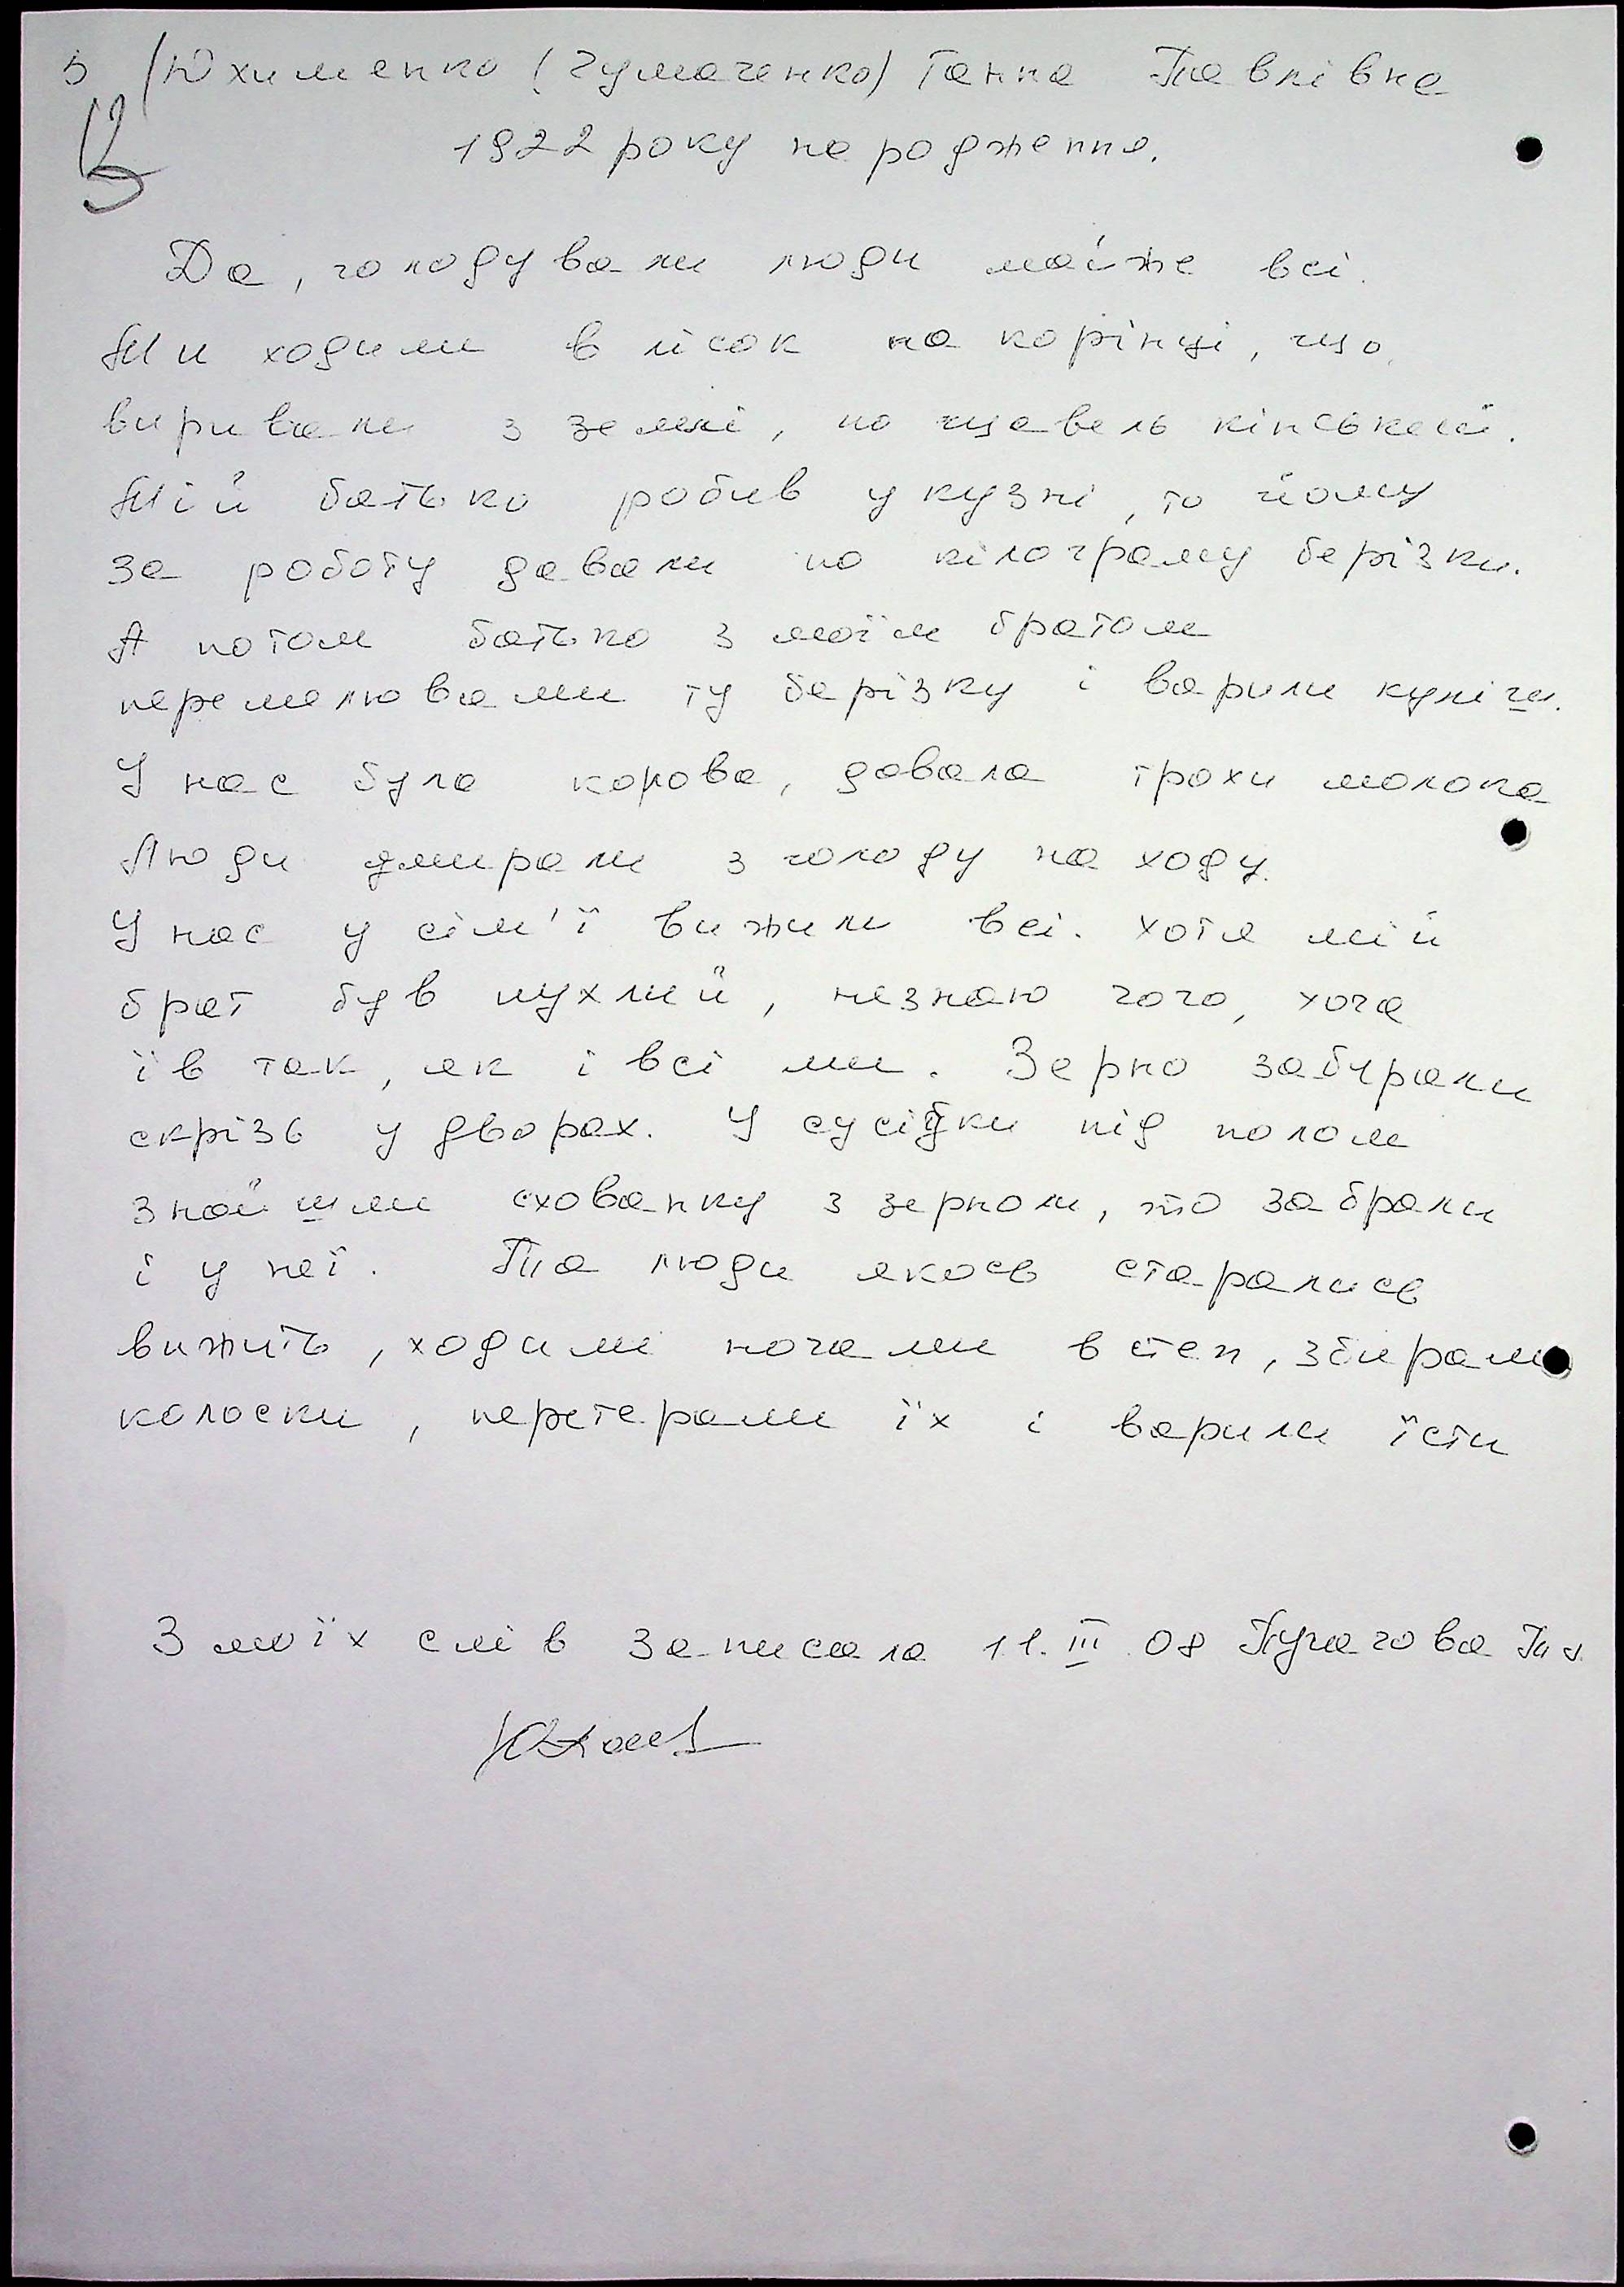 5 Юхименко (Чумаченко) Ганна Павлівна
1922 року народження.
Да, голодували люди майже всі.
Ми ходили в лісок на корінці, що
виривали з землі, по щавель кінський.
Мій батько робив у кузні, то йому
за роботу давали по кілограму берізки.
А потом батько з моїм братом
перемелювали ту берізку і варили куліш.
У нас була корова, давала трохи молока
Люди умирали з голоду на ходу.
У нас у сім'ї вижили всі. хотя мій
брат був пухлий, незнаю чого, хоча
їв так, як і всі ми. Зерно забирали
скрізь у дворах. У сусідки під полом
знайшли схованку з зерном, то забрали
і у неї. Та люди якось старались
вижить, ходили ночами в степ, збирали
колоски, перетерали їх і варили їсти
З моїх слів записала 11.III.08